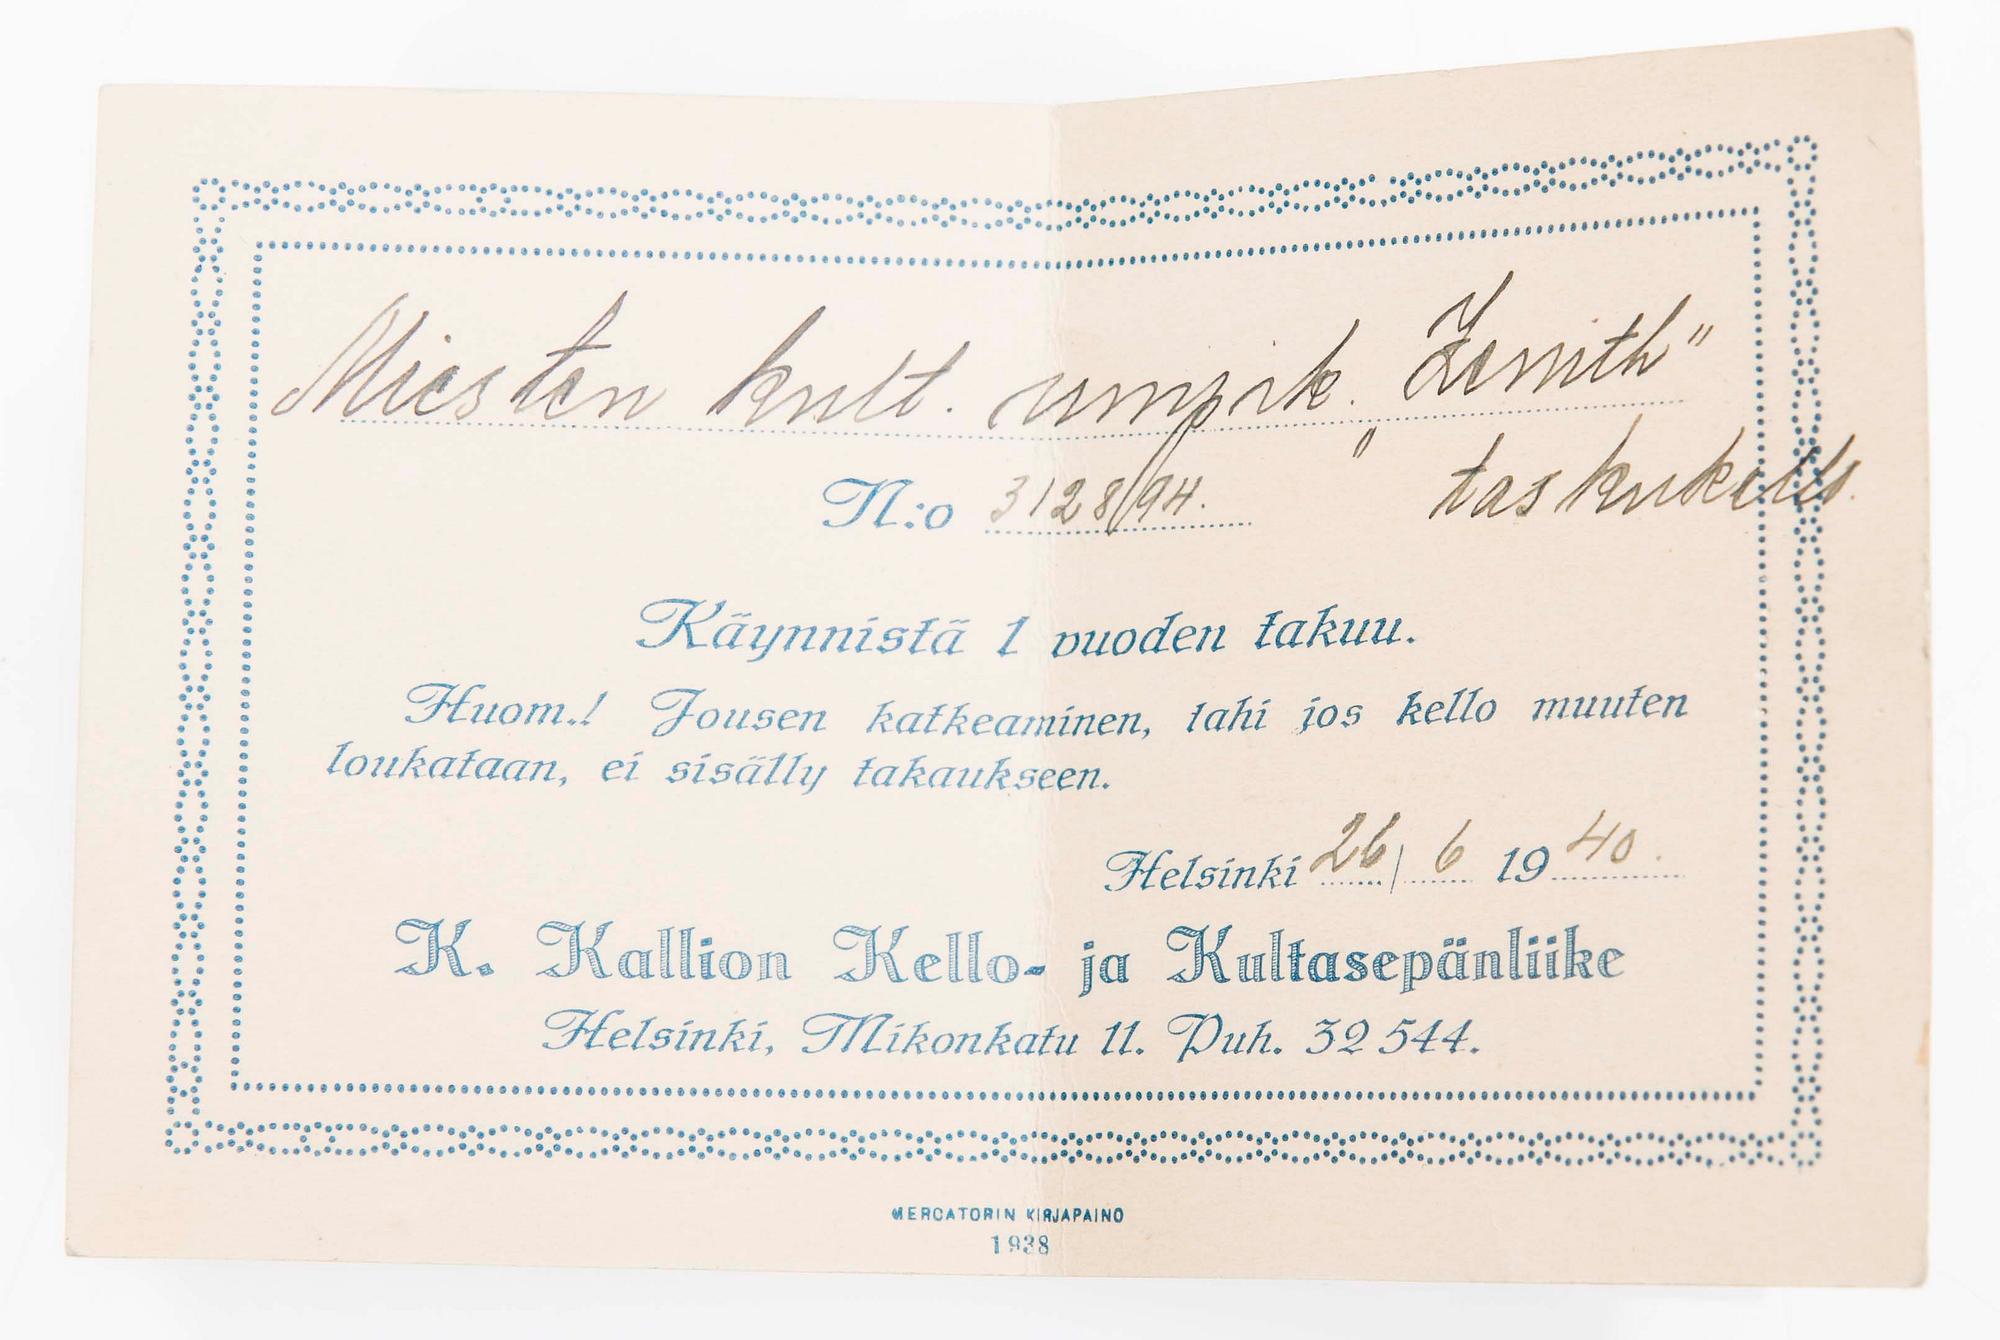 Miesten kult. umpik. "Zenith"
" taskukello.
N:o 312894.
Käynnistä 1 vuoden takuu.
Huom.! Jousen katkeaminen, tahi jos kello muuten
loukataan, ei sisälly takaukseen.
Helsinki 26/6 1940.
K. Kallion Kello- ja Kultasepänliike
Helsinki, Mikonkatu 11. Puh. 32 544.
MERCATORIN KIRJAPAINO
1938